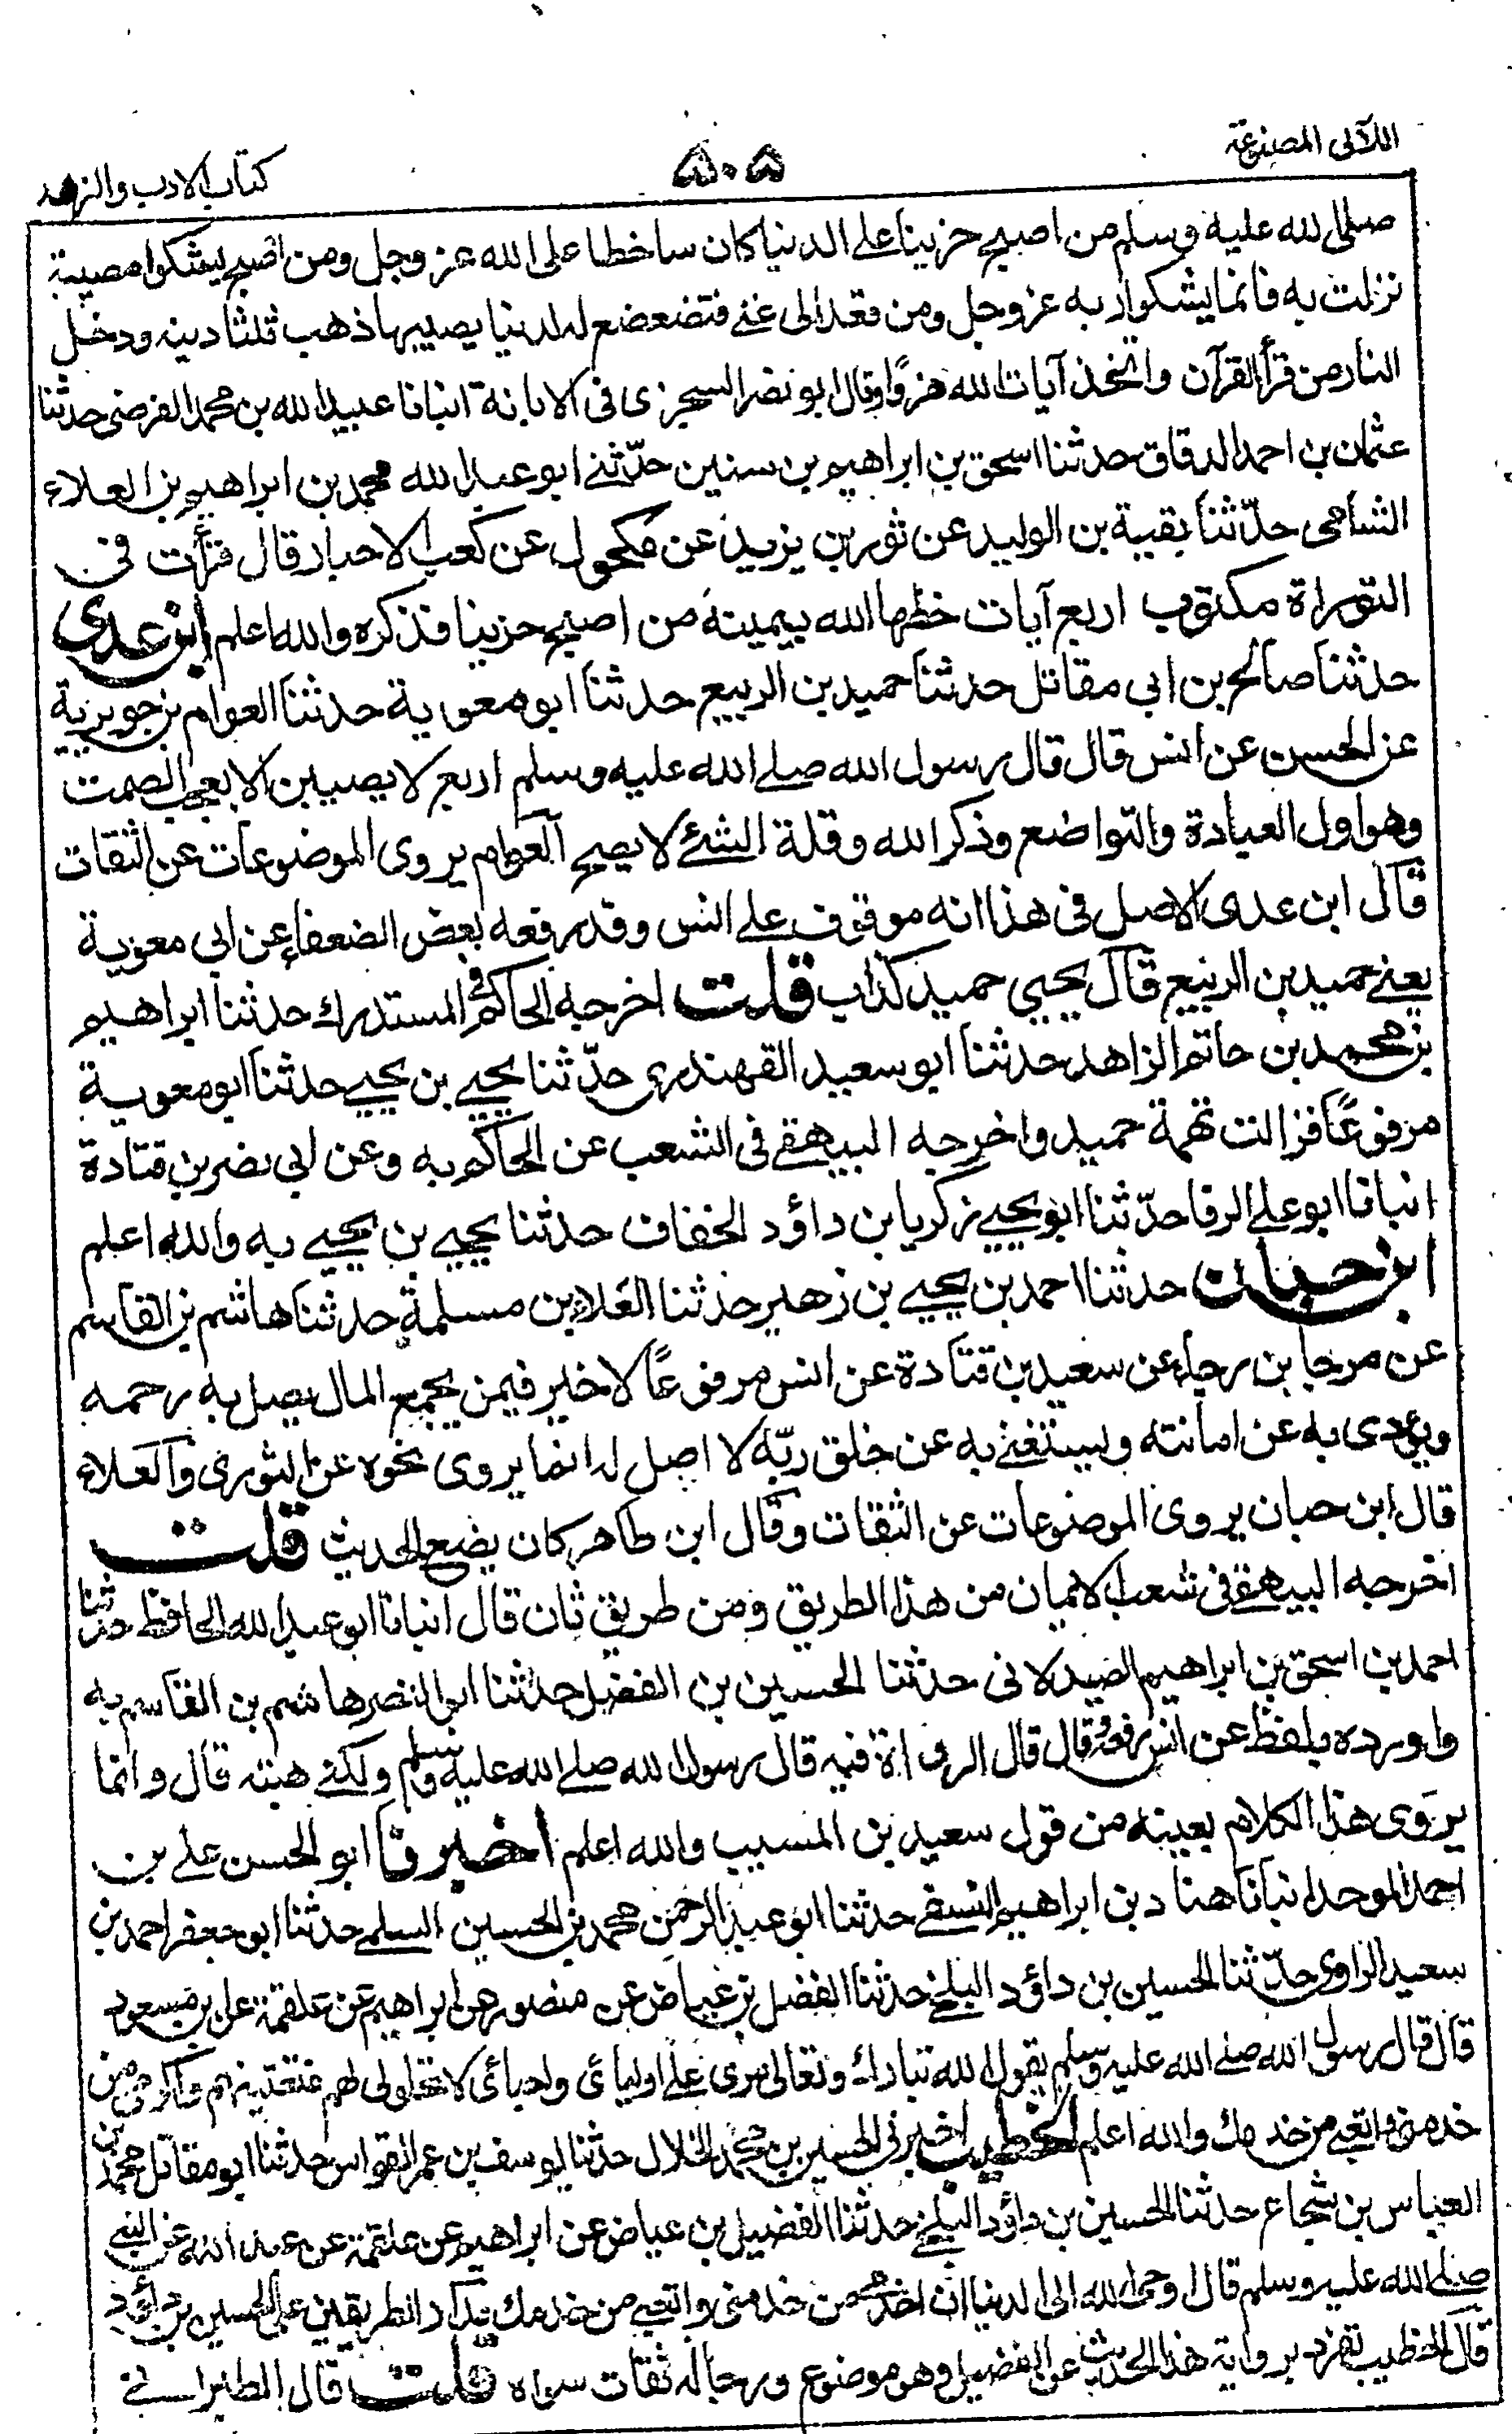 اللآلى المصنوعة
۵۰۵
كتاب الادب والزهد
صلى الله عليه وسلم من اصبح حزينا على الدنيا كان ساخطا على الله عز وجل ومن اصبح يشكوا مصيبة
نزلت به فانما يشكوا ربه عز وجل ومن قعد الى غنى فتضعضع له لدنيا يصيبها ذهب ثلثا دينه ودخل
النار من قرأ القرآن واتخذ آيات الله هزؤا وقال ابو نصر السجزى فى الابانة انبانا عبيد الله بن محمد الفرضى حدثنا
عثمان بن احمد الدقاق حدثنا اسحق بن ابراهيم بن سنين حدّثنى ابو عبد الله محمد بن ابراهيم بن العلاء
الشامى حدّثنا بقية بن الوليد عن ثور بن يزيد عن مكحول عن كعب الاحبار قال قرأت فى
التوراة مكتوب اربع آيات خطها الله بيمينه من اصبح حزينا فذكره والله اعلم ابن عدى
حدثنا صالح بن ابى مقاتل حدثنا حميد بن الربيع حدثنا ابو معوية حدثنا العوام بن جويرية
عن الحسن عن انس قال قال رسول الله صلى الله عليه وسلم اربع لا يصيبن الا بعجب الصمت
وهو اول العبادة والتواضع وذكر الله وقلة الشئ لا يصح العوام يروى الموضوعات عن الثقات
قال ابن عدى الاصل فى هذا انه موقوف على انس وقد رفعه بعض الضعفاء عن ابى معوية
يعنى حميد بن الربيع قال يحيى حميد كذاب قلت اخرجه الحاكم فى المستدرك حدثنا ابراهيم
بن محمد بن حاتم الزاهد حدثنا ابو سعيد القهندرى حدّثنا يحيى بن يحيى حدثنا ابو معوية
مرفوعًا فزالت تهمة حميد واخرجه البيهقى فى الشعب عن الحاكم به وعن ابى نصر بن قتادة
انبانا ابو على الرفا حدّثنا ابو يحيى زكريا بن داؤد الخفاف حدثنا يحيى بن يحيى به والله اعلم
ابن حبان حدثنا احمد بن يحيى بن زهير حدثنا العلاء بن مسلمة حدثنا هاشم بن القاسم
عن مرجا بن رجاء عن سعيد بن قتادة عن انس مرفوعًا لا خير فيمن يجمع المال يصل به رحمه
ويؤدى به عن امانته ويستغنى به عن خلق ربّه لا اصل له انما يروى نحوه عن الثورى والعلاء
قال ابن حبان يروى الموضوعات عن الثقات وقال ابن طاهر كان يضع الحديث قلت
اخرجه البيهقى فى شعب الايمان من هذا الطريق ومن طريق ثان قال انبانا ابو عبد الله الحافظ حدثنا
احمد بن اسحق بن ابراهيم الصيدلانى حدثنا الحسين بن الفضل حدثنا ابو النضر هاشم بن القاسم به
واورده بلفظ عن انس رفعه قال قال الرواة فيه قال رسول الله صلى الله عليه وسلم ولكنى هبته قال وانما
يروى هذا الكلام بعينه من قول سعيد بن المسيب والله اعلم اخبرنا ابو الحسن على بن
احمد الموحد انبانا هناد بن ابراهيم النسفى حدثنا ابو عبد الرحمن محمد بن الحسين السلمى حدثنا ابو جعفر احمد بن
سعيد الرازى حدّثنا الحسين بن داؤد البلخى حدثنا الفضل بن عياض عن منصور عن ابراهيم عن علقمة عن بن مسعود
قال قال رسول الله صلى الله عليه وسلم يقول الله تبارك وتعالى مرى على اوليائى واحبائى لا تحلولى لهم فتفتنيهم واكرمى من
خدمنى واتعبى من خدمك والله اعلم الخطيب اخبرنى الحسين بن محمد الخلال حدثنا يوسف بن عمر القواس حدثنا ابو مقاتل محمد بن
العباس بن شجاع حدثنا الحسين بن داؤد البلخى حدثنا الفضيل بن عياض عن ابراهيم عن علقمة عن عبد الله عن النبى
صلى الله عليه وسلم قال اوحى الله الى الدنيا ان اخدمى من خدمنى واتعبى من خدمك الطريقين على الحسين بن داؤد
قال الخطيب تفرد برواية هذا الحديث عن الفضيل وهو موضوع ورجاله ثقات سواه قلت قال الطبرانى